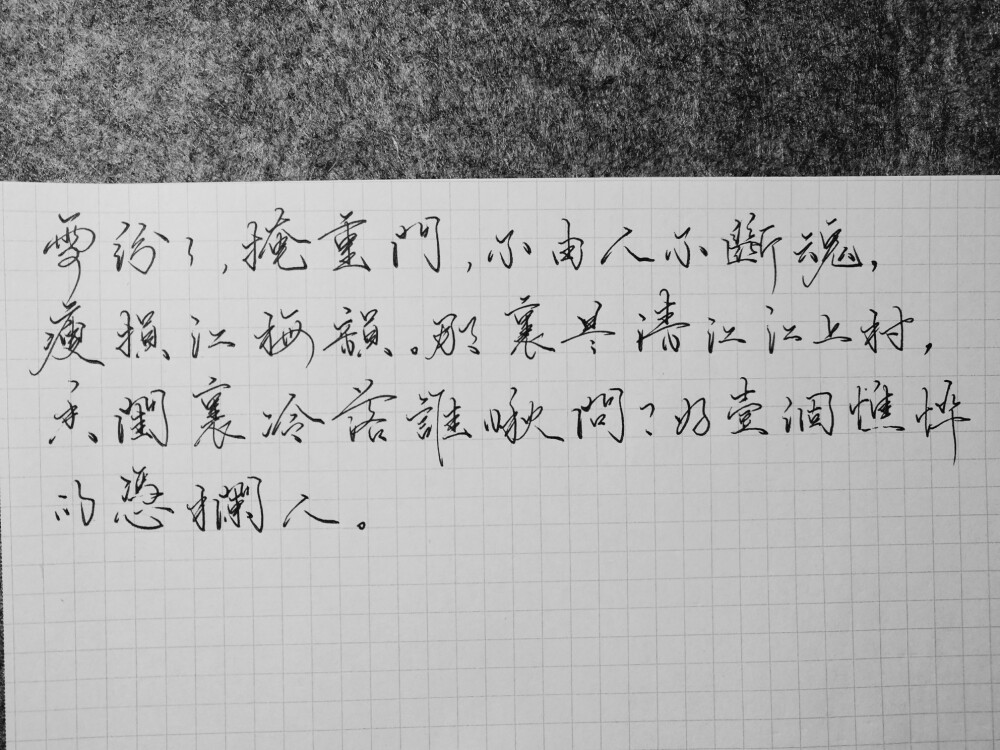 雪紛紛,掩重門,不由人不斷魂,
瘦損江梅韻。那裏是清江江上村,
香閨裏冷落誰瞅問?好壹個憔悴
的憑欄人。